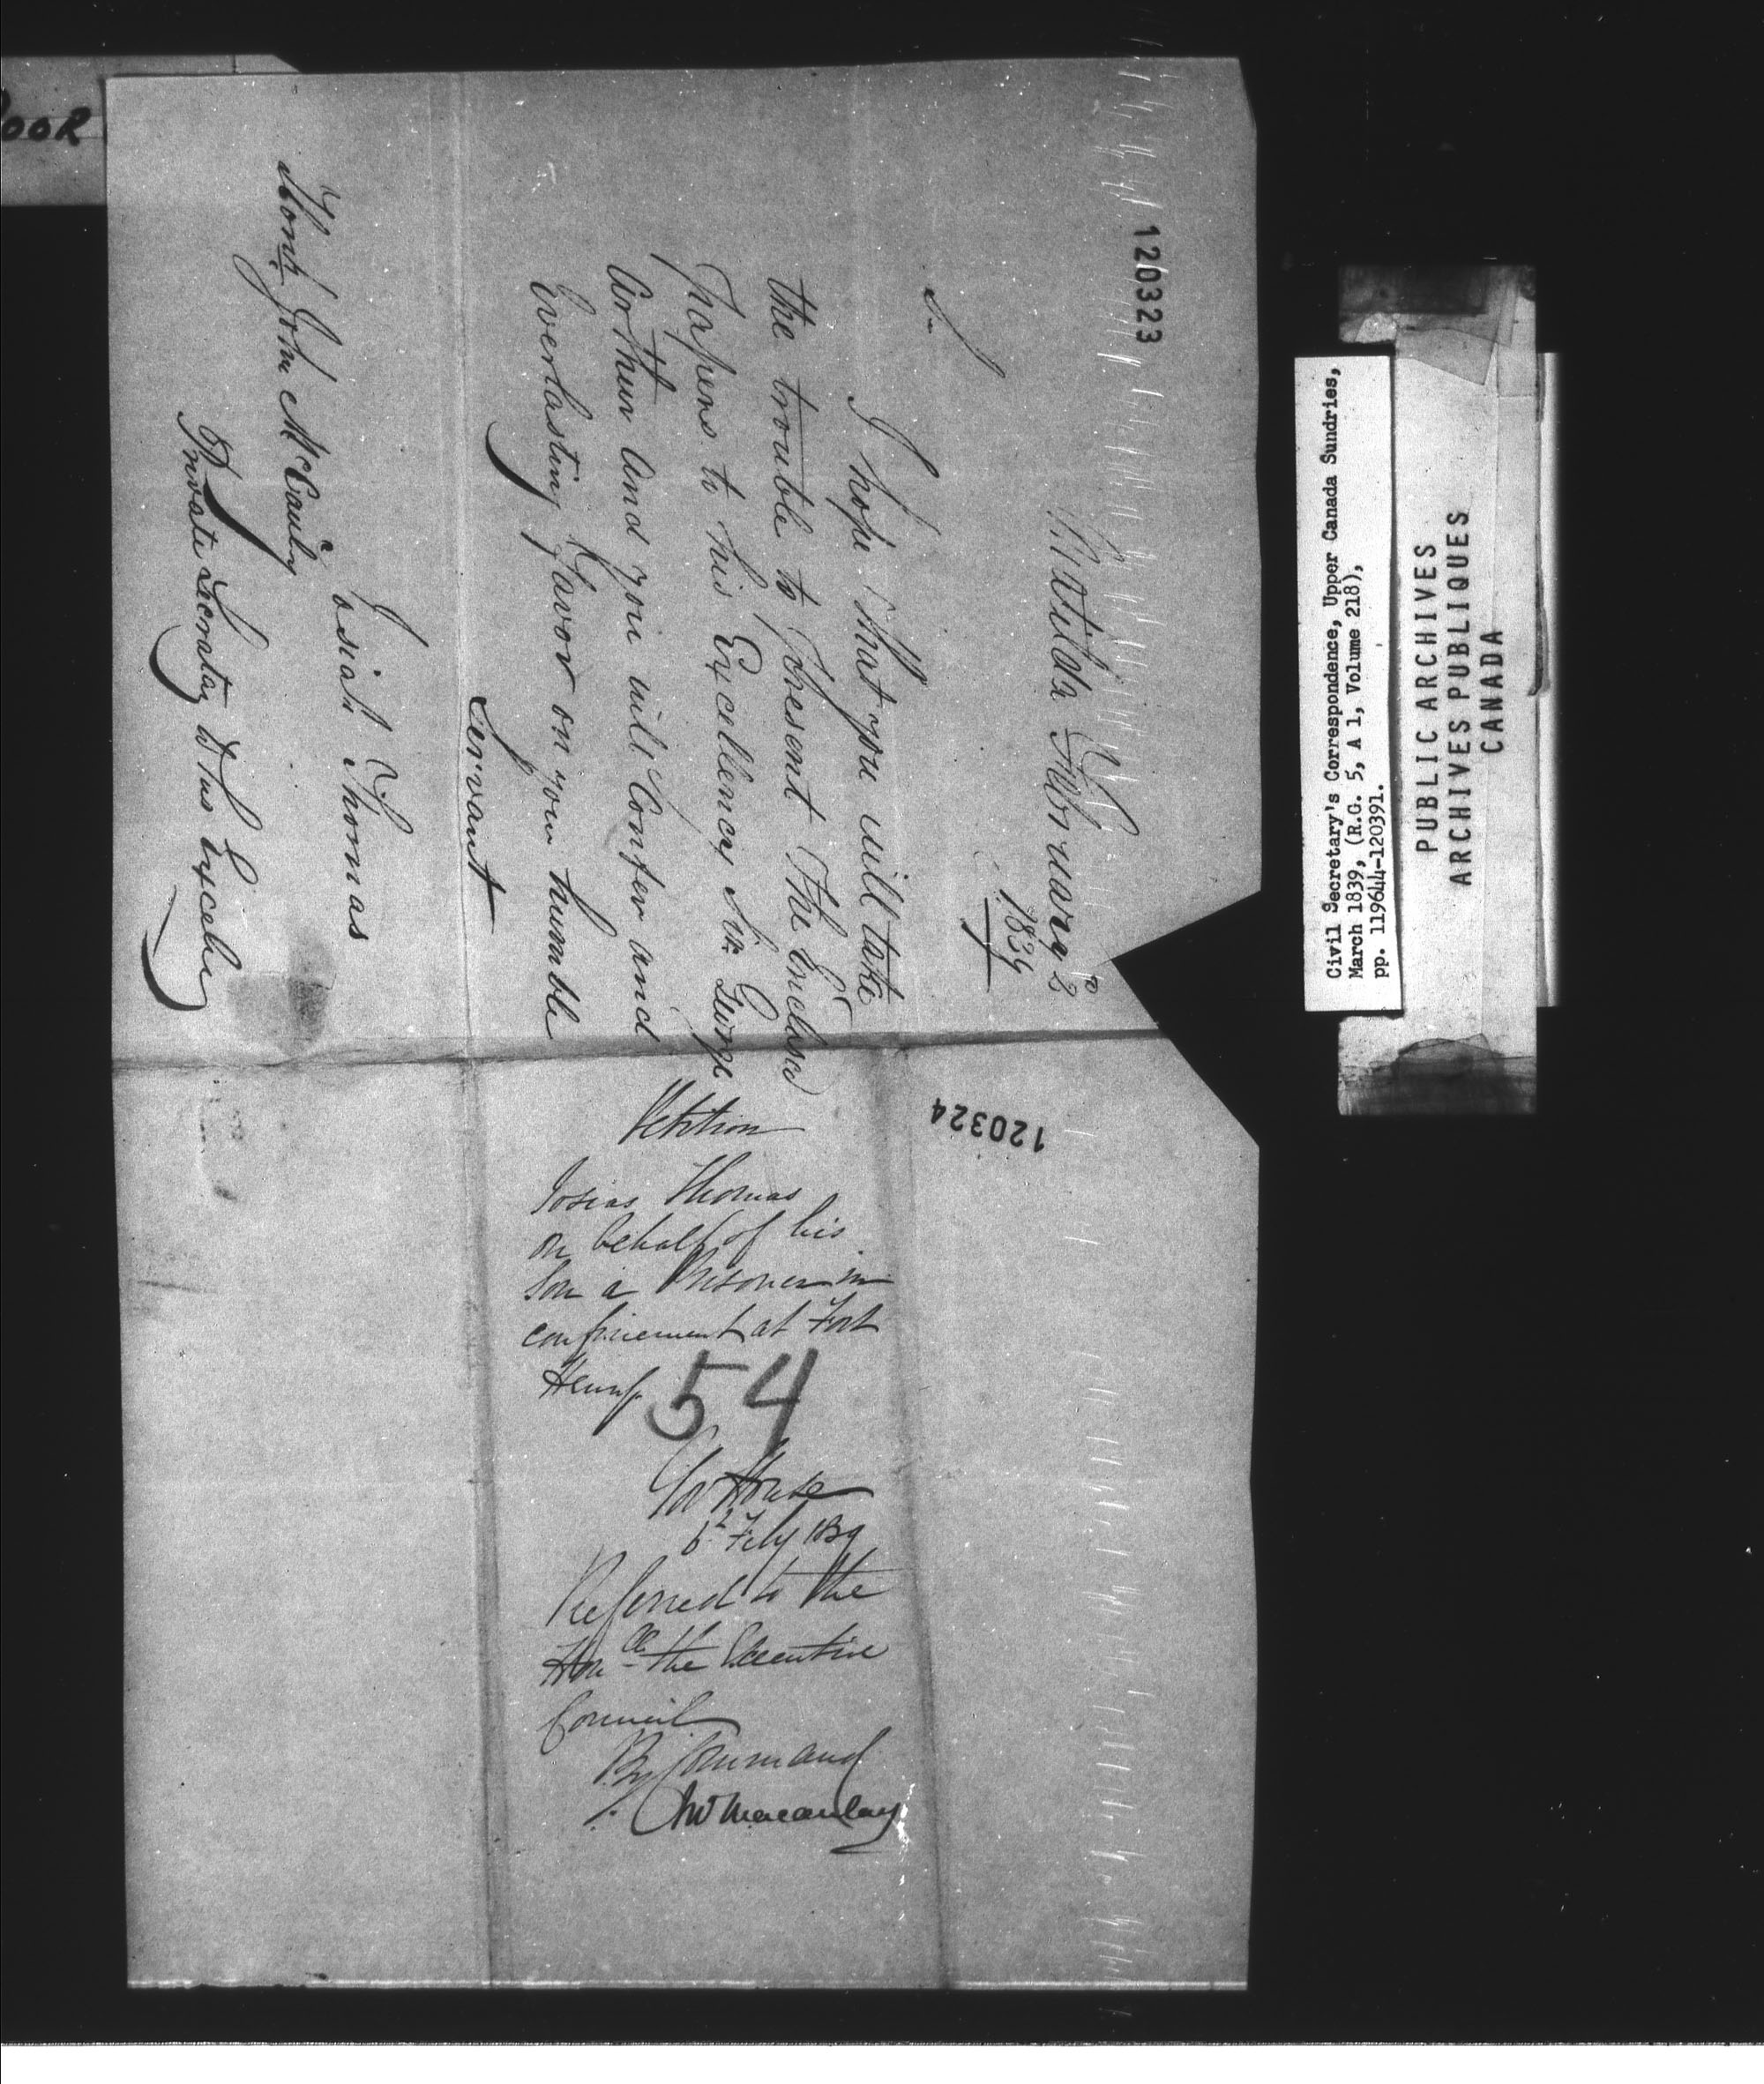 120323
Matilda February 2d
1839
Sir
I hope that you will take
the trouble to present the inclosed
papers to his Excellency Sir George
Arthur and you will Confer and
Everlasting Favor on your humble
Servant
Josiah Thomas
Honble John McCauly
Private Secratay to his Excelen
120324
Petition
Josias Thomas
on behalf of his
Son a Prisoner in
confinement at Fort
Henry
54
Gov House
6th Feby 1839
Referred to the
Honble the Executive
Council
By Command
Jno Macaulay
Civil Secretary's Correspondence, Upper Canada Sundries,
March 1839, (R.G. 5, A 1, Volume 218),
pp. 119644-120391.
PUBLIC ARCHIVES
ARCHIVES PUBLIQUES
CANADA